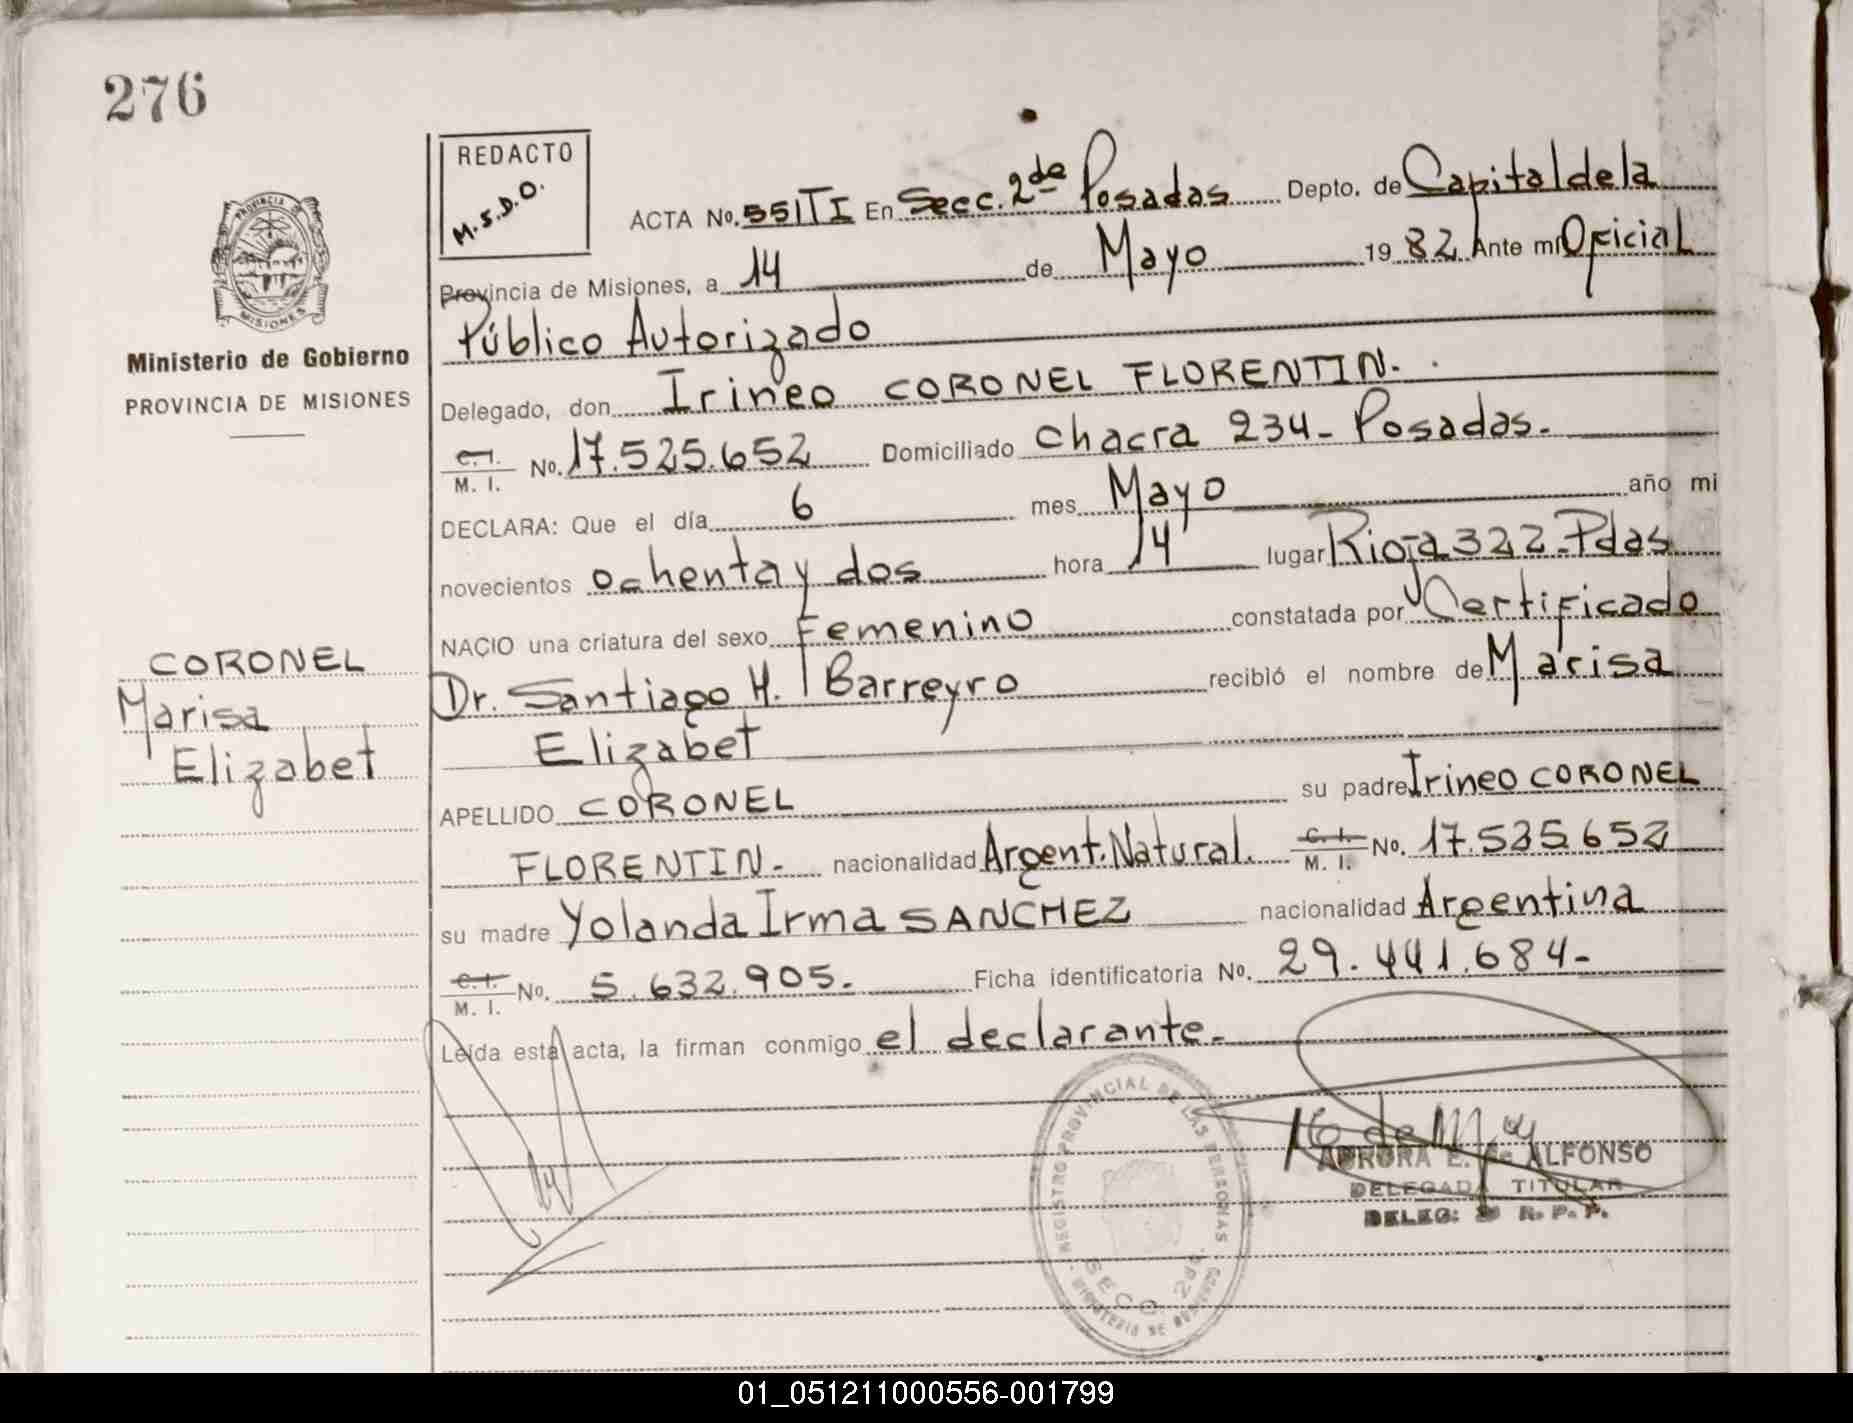 276
REDACTO
M.S.D.O.
PROVINCIA DE
MISIONES
Ministerio de Gobierno
PROVINCIA DE MISIONES
ACTA No. 551 T I En Secc. 2da Posadas Depto. de Capital de la
Provincia de Misiones, a 14 de Mayo 1982 Ante mi Oficial
Público Autorizado
Delegado, don Irineo CORONEL FLORENTIN.
C. I.
M. I. No. 17.525.652 Domiciliado Chacra 234- Posadas.
DECLARA: Que el día 6 mes Mayo año mi
novecientos ochenta y dos hora 14 lugar Rioja 322-Pdas
NACIO una criatura del sexo Femenino constatada por Certificado
Dr. Santiago H. Barreyro recibió el nombre de Marisa
Elizabet
APELLIDO CORONEL su padre Irineo CORONEL
FLORENTIN- nacionalidad Argent. Natural. C. I.
M. I. No. 17.525.652
su madre Yolanda Irma SANCHEZ nacionalidad Argentina
C. I.
M. I. No. 5.632.905. Ficha identificatoria No. 29.441.684-
Leída esta acta, la firman conmigo el declarante-
CORONEL
Marisa
Elizabet
REGISTRO PROVINCIAL DE LAS PERSONAS
SECC. 2da.
MINISTERIO DE GOBIERNO
AURORA E. de ALFONSO
DELEGADA TITULAR
DELEG: R. P. P.
01_051211000556-001799